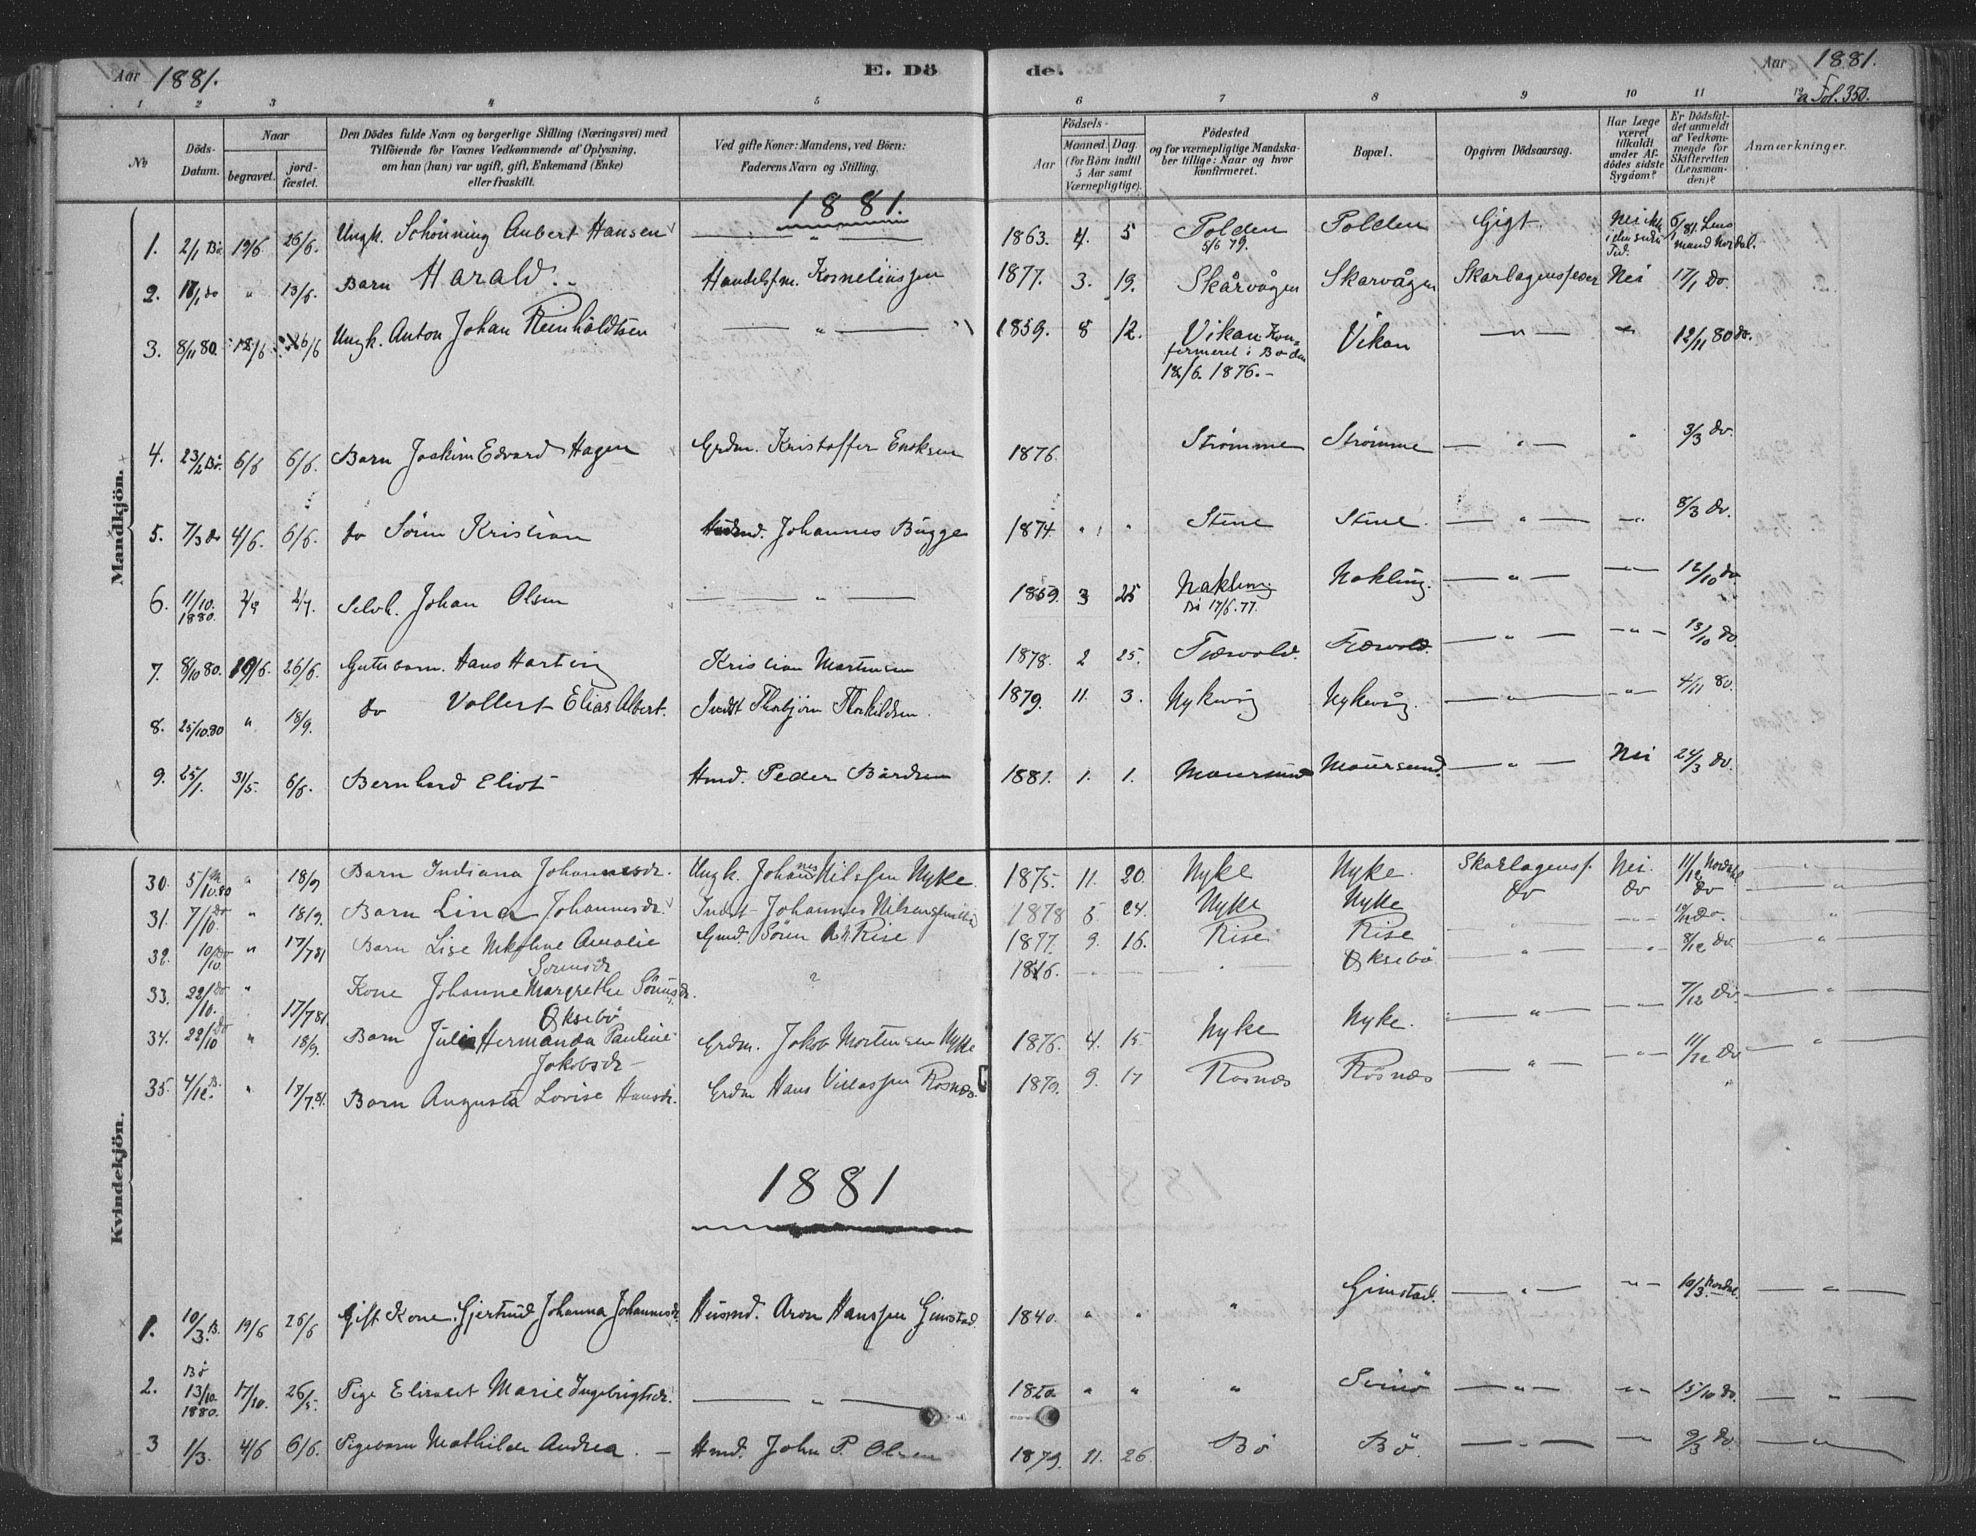 Aar 1881. E. Dö de. Aar 1881.
Fol. 350.
1 2 3 4 5 6 7 8 9 10 11 12
No
Döds-Datum.
Naar
begravet.
jord-fæstet.
Den Dödes fulde Navn og borgerlige Stilling (Næringsvei) med
Tilföiende for Voxnes Vedkommende af Oplysning,
om han (hun) var ugift, gift, Enkemand (Enke)
eller fraskilt.
Ved gifte Koner: Mandens, ved Börn:
Faderens Navn og Stilling.
Födsels-
Aar
Maaned. Dag.
(for Börn indtil
5 Aar samt
Værnepligtige).
Födested
og for værnepligtige Mandska-
ber tillige: Naar og hvor
konfirmeret.
Bopæl.
Opgiven Dödsaarsag.
Har Læge
været
tilkaldt
under Af-
dödes sidste
Sygdom?
Er Dödsfal-
det anmeldt
af Vedkom-
mende for
Skifteretten
(Lensman-
den)?
Anmærkninger.
Mandkjön.
1881.
1. 2/1 Bö. 19/6 26/6. Ungk. Schönning Aubert Hansen — " — 1863. 4. 5 Folden 5/6 79. Folden Gigt. Nei
2. 11/1 do " 13/6. Barn Harald. Handelsm. Korneliussen 1877. 3. 19. Skårvågen Skarvågen Skarlagensfeber Nei 17/1 do.
3. 8/11 80. 12/6 26/6 Ungk. Anton Johan Reinholdtsen — " — 1859. 8 12. Vikan Kon-
firmeret i Bö den
18/6. 1876. Vikan — " — " 12/11 80 do.
4. 23/2 Bö. 6/6 6/6. Barn Joakim Edvard Hagen Grdm. Kristoffer Enoksen 1876. Strömme Strömme — " — " 3/3 do.
5. 7/3 do 4/6. 6/6. do Sören Kristian Husmd. Johannes Bugge 1874. " " Stene Stene. — " — 8/3 do.
6. 11/10. 1880. 2/7. Selvl. Johan Olsen — " — 1859. 3 25 Nakling Bö 17/6. 77. Nakling. — " — 12/10 do
7. 8/10 80. 19/6. 26/6. Guttebarn. Hans Harting Kristian Mortensen 1878. 2 25. Fjærvold. Fjærvold. — " — " — 13/10 do
8. 25/10. 80 " 18/9. do Vollert Elias Albert. Indst Thorbjörn Thorkildsen. 1879. 11. 3. Nykvåg Nykvåg. — " — 4/11 80.
9. 25/1. 31/5. 6/6. Bernhard Eliot Hmd. Peder Bårdsen 1881. 1. 1. Maursund Maursund. — " — Nei 24/3 do.
Kvindekjön.
30. 5/10. 80 " 18/9 Barn Indiana Johannesdr. Ungk. Johannes Nilssen Nyke. 1875. 11. 20. Nyke Nyke. Skarlagensf. Nei. 11/12 Nordal
31. 7/10. do " 18/9. Barn Lina Johannesdr. Indst Johannes Nilsen 1878 5. 24. Nyke Nyke do do do
32. 10/10. do " 17/7 81 Barn Lise Nikoline Amalie
Sörensdr Gmd. Sören Rise 1877. 9. 16. Rise Rise — " — 8/12 do
33. 22/10. do " 17/7 81 Kone Johanne Margrethe Sörensdr.
Öksebö " Öksebö — " — 7/12 do.
34. 22/10 do " 18/9. Barn Julie Hermanda Pauline
Jakobsdr Grdm. Jakob Mortensen Nyke 1876. 4. 15. Nyke Nyke. — " — 11/12 do
35. 4/12. B. " 17/7. 81. Barn Augusta Lovise Hansdr. Grdm Hans Villassen Rösnæs. 1879. 9. 17 Rösnæs Rösnæs — " —
1881
1. 10/3. B. 19/6 26/6 Gift Kone. Gjertrud Johanna Johannesdr. Husmd. Aron Hanssen Gimstad. 1840. " " " Gimstad. — " — " — 19/3. Nordal. — " —
2. Bö 13/10. 1880. 17/10. 26/5. Pige Elisabet Marie Ingebrigtsdr. — " — 1820. " " " Svinö — " — " 15/10 do. — " —
3 1/3. 4/6 6/6. Pigebarn Mathilde Andrea. — Hmd. John P. Olsen 1879. 11. 26. Bö Bö. — " — 9/3 do — " —